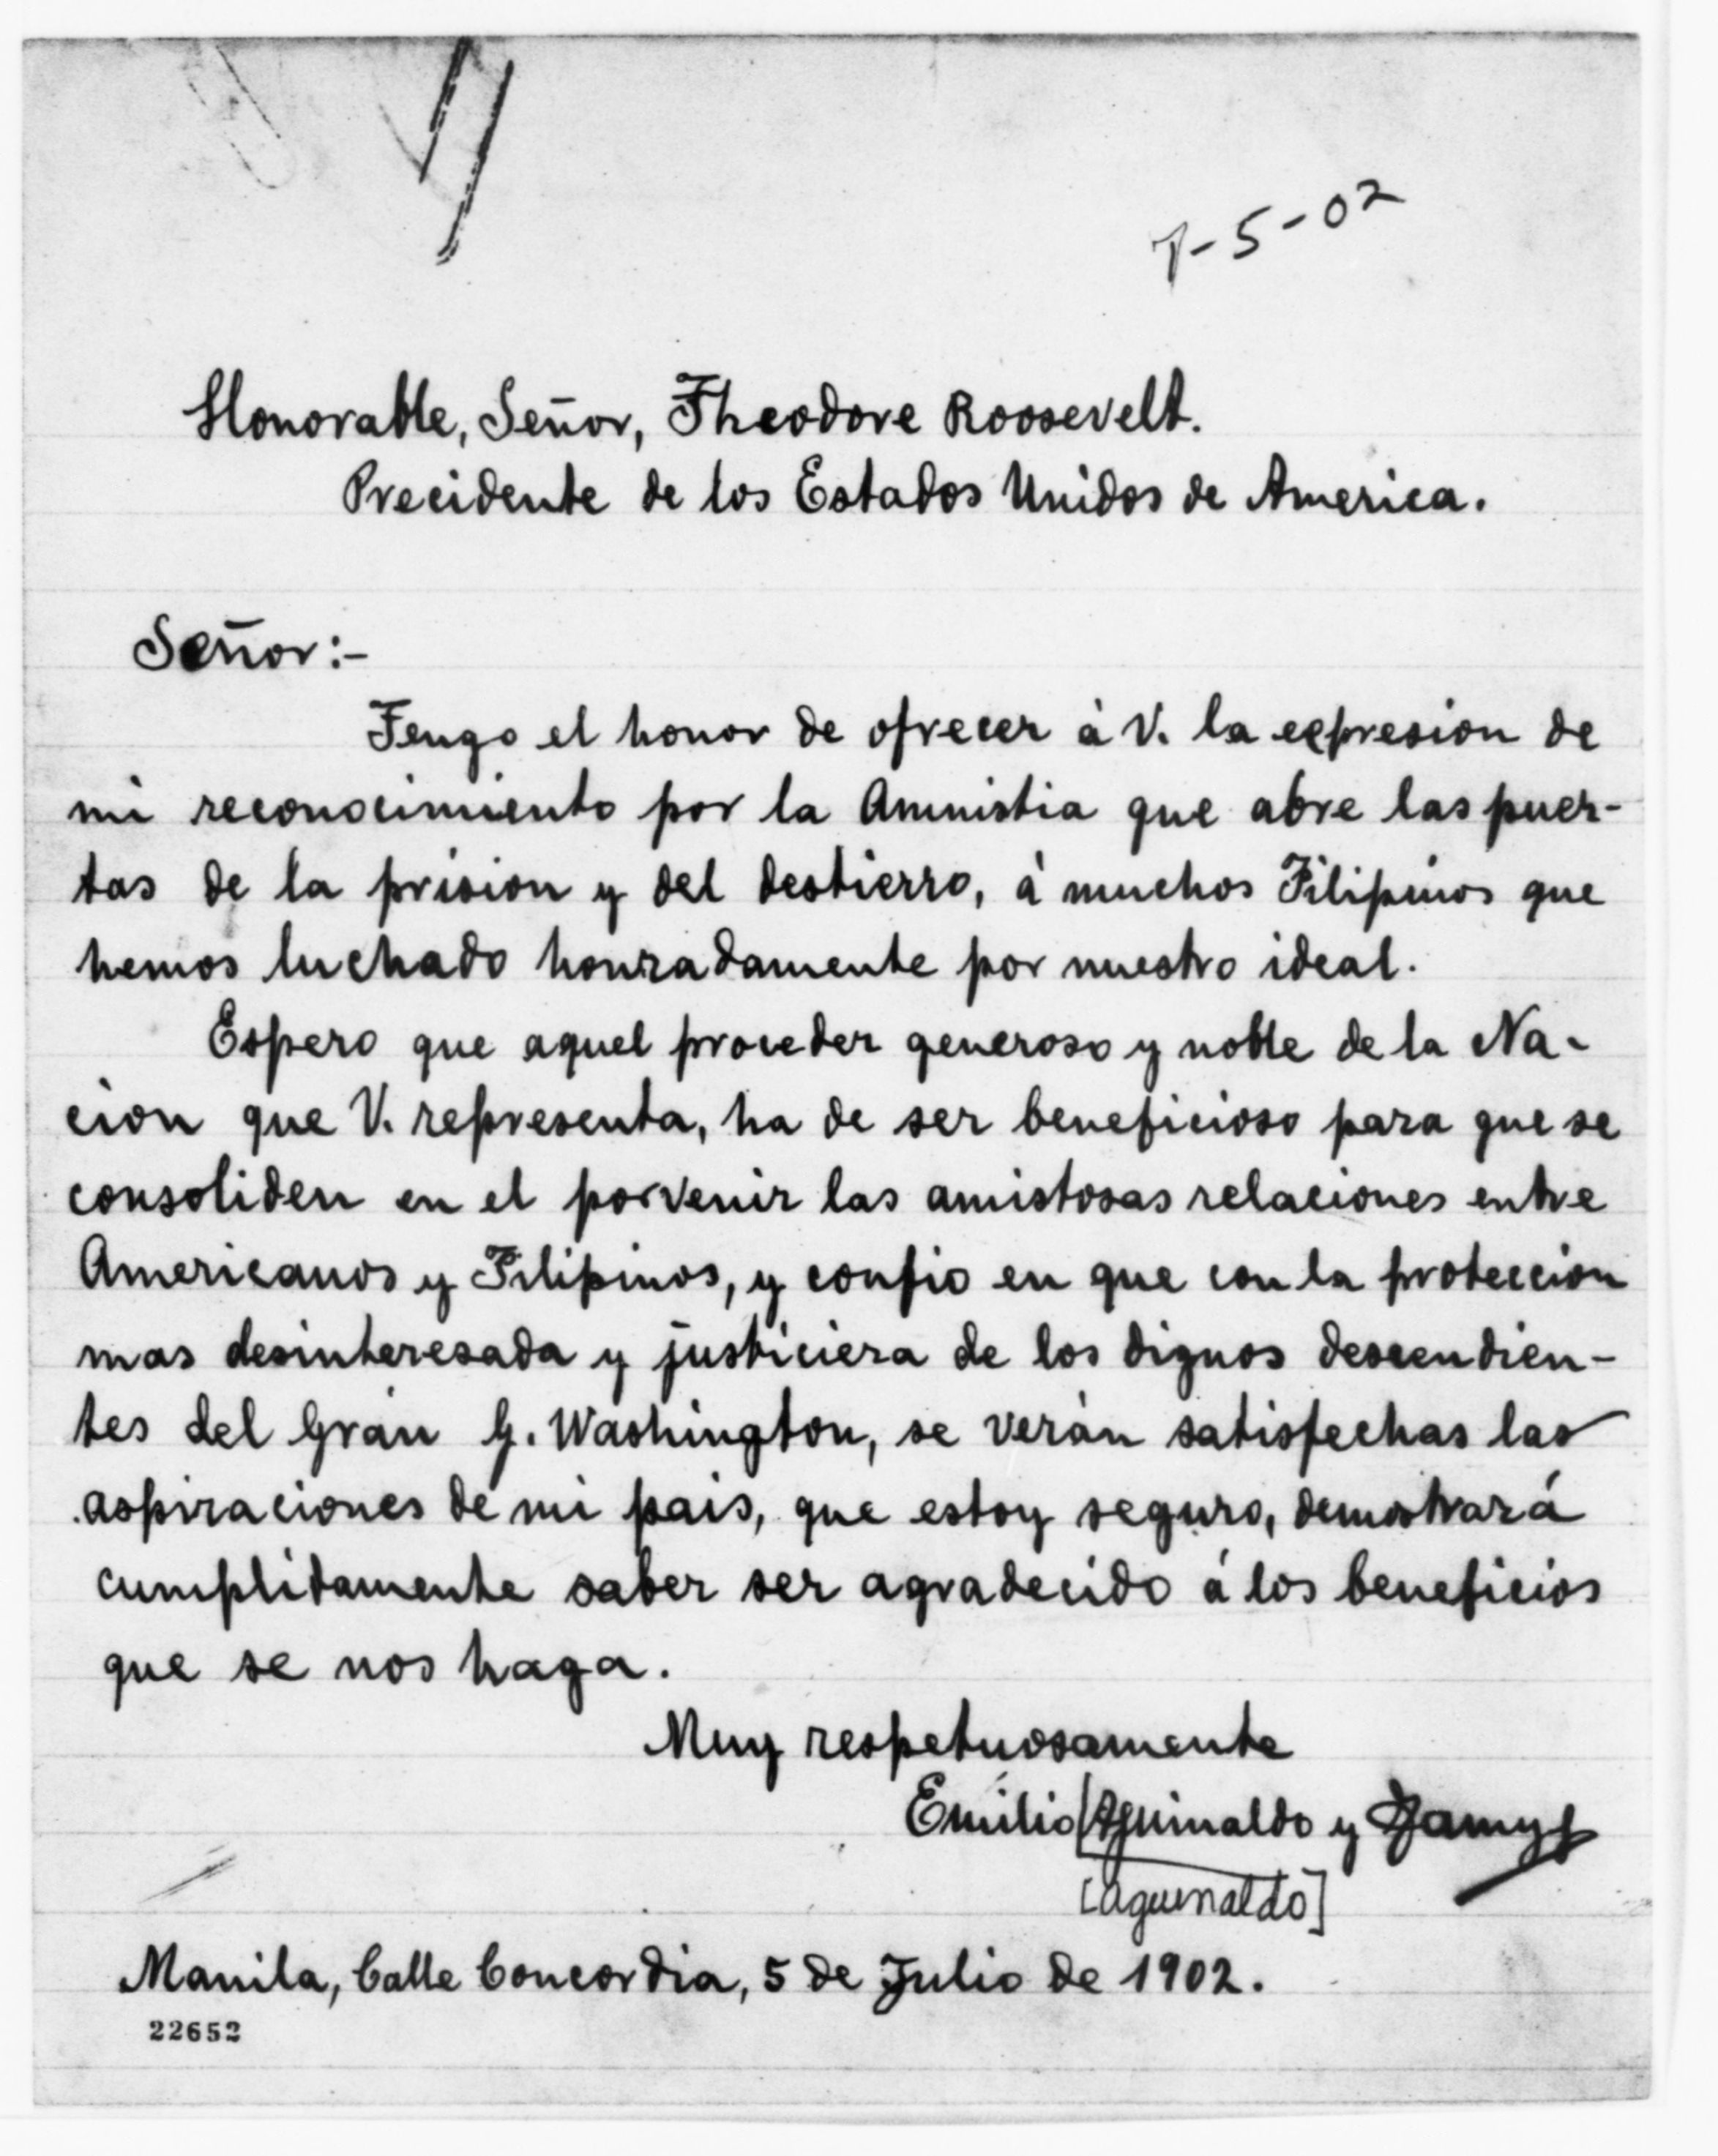 7-5-02
Honorable, Señor, Theodore Roosevelt.
Precidente de los Estados Unidos de America.
Señor:-
Tengo el honor de ofrecer à V. la expresion de
mi reconocimiento por la Amnistia que abre las puer-
tas de la prision y del destierro, á muchos Filipinos que
hemos luchado honradamente por nuestro ideal.
Espero que aquel proceder generoso y noble de la Na-
cion que V. representa, ha de ser beneficioso para que se
consoliden en el porvenir las amistosas relaciones entre
Americanos y Filipinos, y confio en que con la proteccion
mas desinteresada y justiciera de los dignos descendien-
tes del Gran G. Washington, se verán satisfechas las
aspiraciones de mi pais, que estoy seguro, demostrará
cumplidamente saber ser agradecido á los beneficios
que se nos haga.
Muy respetuosamente
Emilio Aguinaldo y Famy
[Aguinaldo]
Manila, Calle Concordia, 5 de Julio de 1902.
22652